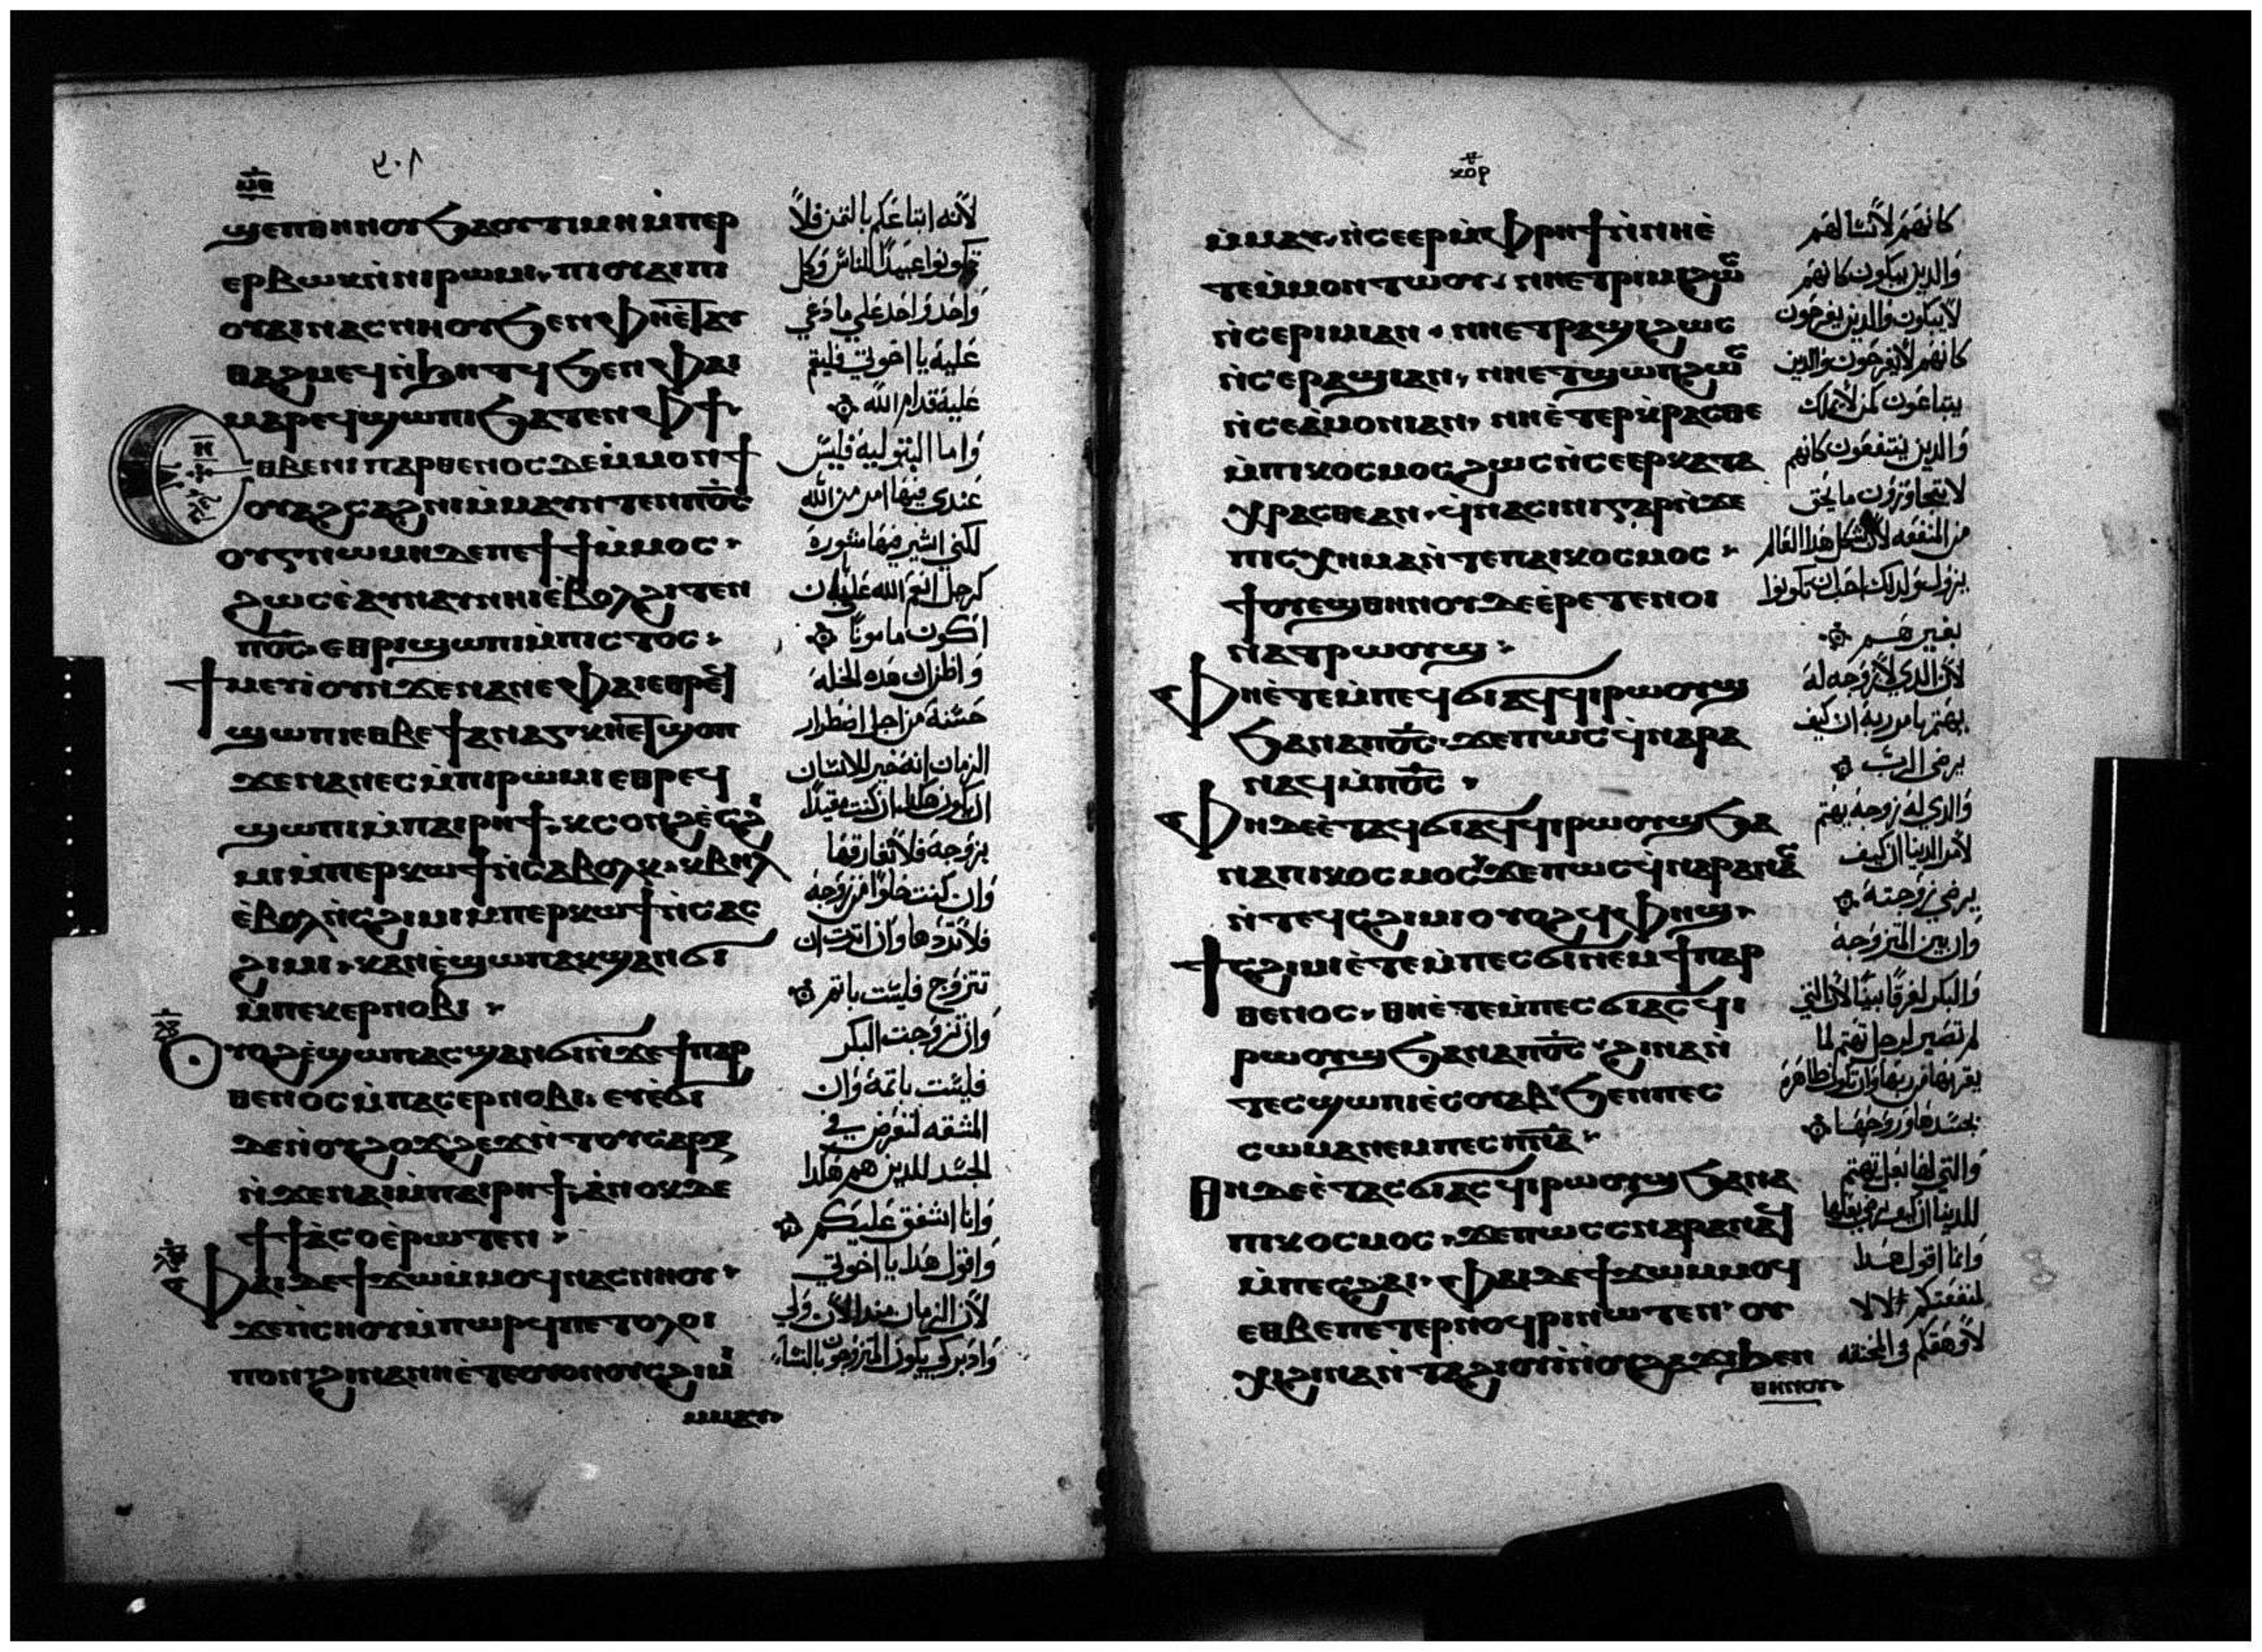 ϣⲉⲡⲑⲏⲛⲟⲩ ϧⲁⲟⲩⲧⲓⲙⲏ ⲙ̀ⲡⲉⲣ
ⲉⲣⲃⲱⲕ ⲛ̀ⲛⲓⲣⲱⲙⲓ, ⲡⲓⲟⲩⲁⲓ ⲡⲓ
ⲟⲩⲁⲓ ⲛⲁⲥⲛⲏⲟⲩ ϧⲉⲛ ⲫⲏⲉ̀ⲧⲁⲩ
ⲑⲁϩⲙⲉϥ ⲛ̀ϧⲏⲧϥ ϧⲉⲛ ⲫⲁⲓ
ⲙⲁⲣⲉϥϣⲱⲡⲓ ϧⲁⲧⲉⲛ ⲫϯ
ⲉⲑⲃⲉ ⲛⲓⲡⲁⲣⲑⲉⲛⲟⲥ ⲇⲉ ⲙ̀ⲙⲟⲛϯ
ⲟⲩⲁϩⲥⲁϩⲛⲓ ⲙ̀ⲙⲁⲩ ⲛ̀ⲧⲉⲛ ⲡⲟ̅ⲥ̅
ⲟⲩⲅⲛⲱⲙⲏ ⲇⲉ ⲡⲉϯϯ ⲙ̀ⲙⲟⲥ
ϩⲱⲥ ⲉ̀ⲁⲩⲛⲁⲓ ⲛⲏⲓ ⲉ̀ⲃⲟⲗ ϩⲓⲧⲉⲛ
ⲡⲟ̅ⲥ̅ ⲉⲑⲣⲓϣⲱⲡⲓ ⲙ̀ⲡⲓⲥⲧⲟⲥ
ϯⲙⲉⲩⲓ ⲟⲩⲛ ϫⲉ ⲛⲁⲛⲉ ⲫⲁⲓ ⲉⲑⲣⲉϥ
ϣⲱⲡⲓ ⲉⲑⲃⲉ ϯⲁⲛⲁⲅⲕⲏ ⲉⲧϣⲟⲡ
ϫⲉ ⲛⲁⲛⲉⲥ ⲙ̀ⲡⲓⲣⲱⲙⲓ ⲉⲑⲣⲉϥ
ϣⲱⲡⲓ ⲙ̀ⲡⲁⲓⲣⲏϯ, ⲕⲥⲟⲛϩ ⲉ̀ⲥϩⲓ
ⲙⲓ ⲙ̀ⲡⲉⲣⲕⲱϯ ⲛ̀ⲥⲁⲃⲟⲗⲕ, ⲕⲃⲏⲗ
ⲉ̀ⲃⲟⲗ ⲛ̀ⲥϩⲓⲙⲓ ⲙ̀ⲡⲉⲣⲕⲱϯ ⲛ̀ⲥⲁⲥ
ϩⲓⲙⲓ, ⲕⲁⲛ ⲉ̀ϣⲱⲡ ⲁⲕϣⲁⲛϭⲓ
ⲙ̀ⲡⲉⲕⲉⲣⲛⲟⲃⲓ
ⲟⲩⲟϩ ⲉ̀ϣⲱⲡ ⲁⲥϣⲁⲛϭⲓ ⲛ̀ϫⲉ ϯⲡⲁⲣ
ⲑⲉⲛⲟⲥ ⲙ̀ⲡⲁⲥⲉⲣⲛⲟⲃⲓ, ⲉⲩⲉ̀ϭⲓ
ⲇⲉ ⲛ̀ⲟⲩϩⲟϫϩⲉϫ ⲛ̀ⲧⲟⲩⲥⲁⲣⲝ
ⲛ̀ϫⲉ ⲛⲁⲓ ⲙ̀ⲡⲁⲓⲣⲏϯ, ⲁ̀ⲛⲟⲕ ⲇⲉ
ϯϯⲁ̀ⲥⲟ ⲉ̀ⲣⲱⲧⲉⲛ
ⲫⲁⲓ ⲇⲉ ϯϫⲱ ⲙ̀ⲙⲟϥ ⲛⲁⲥⲛⲏⲟⲩ
ϫⲉ ⲡ̀ⲥⲏⲟⲩ ⲙ̀ⲡⲱⲣϥ ⲡⲉ ⲧⲟⲗⲟⲓ
ⲡⲟⲛ ϩⲓⲛⲁ ⲛⲏⲉ̀ⲧⲉ ⲟⲩⲟⲛ ⲟⲩⲥϩⲓⲙⲓ
ⲙⲙⲁⲩ
لانه ابتاعكم بالثمن فلا
تكونوا عبيدا للناس وكل
واحد واحد علي ما دعي
عليه يا اخوتي فليقم
عليه قدام الله
واما البتوليه فليس
عندي فيها امر من الله
لكني اشير فيها مشورة
كرجل انعم الله عليه ان
اكون مامونا
واظن ان هذه الخلة
حسنة من اجل اضطرار
الزمان انه خير للانسان
ان يكون هكذا ان كنت مقيدا
بزوجة فلا تفارقها
وان كنت خلوا من زوجة
فلا تردها وان اثرت ان
تتزوج فليست باثم
وان تزوجت البكر
فليست باثمة وان
المشقه لتعرض في
الجسد للذين هم هكذا
وانا اشفق عليكم
واقول هذا يا اخوتي
لان الزمان منذ الان ولي
وادبر كي يكون المتزوجون بالنساء
ⲙ̀ⲙⲁⲩ, ⲛ̀ⲥⲉⲉⲣ ⲙ̀ⲫⲣⲏϯ ⲛ̀ⲛⲏⲉ̀
ⲧⲉ ⲙ̀ⲙⲟⲛ ⲧⲱⲟⲩ, ⲛⲏⲉⲧⲣⲓⲙⲓ ϩⲱⲥ
ⲛ̀ⲥⲉⲣⲓⲙⲓ ⲁⲛ, ⲛⲏⲉⲧⲣⲁϣⲓ ϩⲱⲥ
ⲛ̀ⲥⲉⲣⲁϣⲓ ⲁⲛ, ⲛⲏⲉⲧϣⲱⲡ ϩⲱⲥ
ⲛ̀ⲥⲉⲁ̀ⲙⲟⲛⲓ ⲁⲛ, ⲛⲏⲉ̀ⲧⲉⲣⲭⲣⲁⲥⲑⲉ
ⲙ̀ⲡⲓⲕⲟⲥⲙⲟⲥ ϩⲱⲥ ⲛ̀ⲥⲉⲉⲣⲕⲁⲧⲁ
ⲭⲣⲁⲥⲑⲉ ⲁⲛ, ϥ̀ⲛⲁⲥⲓⲛⲓ ⲅⲁⲣ ⲛ̀ϫⲉ
ⲡⲓⲥⲭⲏⲙⲁ ⲛ̀ⲧⲉ ⲡⲁⲓⲕⲟⲥⲙⲟⲥ
ϯⲟⲩⲉϣ ⲑⲏⲛⲟⲩ ⲇⲉ ⲉ̀ⲣⲉⲧⲉⲛⲟⲓ
ⲛ̀ⲁⲧⲣⲱⲟⲩϣ
ⲫⲏⲉ̀ⲧⲉ ⲙ̀ⲡⲉϥϭⲓ ⲁϥϥⲓⲣⲱⲟⲩϣ
ϧⲁ ⲛⲁⲡⲟ̅ⲥ̅ ϫⲉ ⲡⲱⲥ ϥ̀ⲛⲁⲣⲁ
ⲛⲁϥ ⲙ̀ⲡⲟ̅ⲥ̅
ⲫⲏ ⲇⲉ ⲉ̀ⲧⲁϥϭⲓ ⲁϥϥⲓⲣⲱⲟⲩϣ ϧⲁ
ⲛⲁⲡⲓⲕⲟⲥⲙⲟⲥ ϫⲉ ⲡⲱⲥ ϥ̀ⲛⲁⲣⲁⲛⲁⲥ
ⲛ̀ⲧⲉϥⲥϩⲓⲙⲓ ⲟⲩⲟϩ ϥ̀ⲫⲏϣ
ϯⲥϩⲓⲙⲓ ⲉ̀ⲧⲉ ⲙ̀ⲡⲉⲥϭⲓ ⲛⲉⲙ ϯⲡⲁⲣ
ⲑⲉⲛⲟⲥ, ⲑⲏⲉ̀ⲧⲉ ⲙ̀ⲡⲉⲥϭⲓ ⲁⲥϥⲓ
ⲣⲱⲟⲩϣ ϧⲁ ⲛⲁⲡⲟ̅ⲥ̅ ϩⲓⲛⲁ ⲛ̀
ⲧⲉⲥϣⲱⲡⲓ ⲉⲥⲟⲩⲁⲃ ϧⲉⲛ ⲡⲉⲥ
ⲥⲱⲙⲁ ⲛⲉⲙ ⲡⲉⲥⲡ̅ⲛ̅ⲁ̅
ⲑⲏ ⲇⲉ ⲉ̀ⲧⲁⲥϭⲓ ⲁⲥϥⲓⲣⲱⲟⲩϣ ϧⲁ ⲛⲁ
ⲡⲓⲕⲟⲥⲙⲟⲥ, ϫⲉ ⲡⲱⲥ ⲥⲛⲁⲣⲁⲛⲁϥ
ⲙ̀ⲡⲉⲥϩⲁⲓ, ⲫⲁⲓ ⲇⲉ ϯϫⲱ ⲙ̀ⲙⲟϥ
ⲉⲑⲃⲉ ⲡⲉⲧⲉⲣⲛⲟϥⲣⲓ ⲛⲱⲧⲉⲛ, ⲟⲩ
ⲭ ϩⲓⲛⲁ ⲛ̀ⲧⲁϩⲓⲟⲩⲓ ⲛ̀ⲟⲩϩⲁϫⲓ ϧⲉⲛ
ⲑⲏⲛⲟⲩ
كانهم لا نسا لهم
والذين يبكون كانهم
لا يبكون والذين يفرحون
كانهم لا يفرحون والذين
يبتاعون كمن لا يملك
والذين ينتفعون كانهم
لا يتجاوزون ما يحق
من المنفعه لان شكل هذا العالم
يزول ولذلك احب ان تكونوا
بغير هم
لان الذي لا زوجه له
يهتم بامور ربه ان كيف
يرضي الرب
والذي له زوجه يهتم
لامر الدنيا ان كيف
يرضي زوجته
وان بين المتزوجه
والبكر لفرقا بينا لان التي
لم تصير لرجل تهتم لما
يقربها من ربها وان تكون طاهرة
بجسدها وروحها
والتي لها بعل تهتم
للدنيا ان كيف ترضي بعلها
وانما اقول هذا
لمنفعتكم لا
لاوهقكم في المخنقه